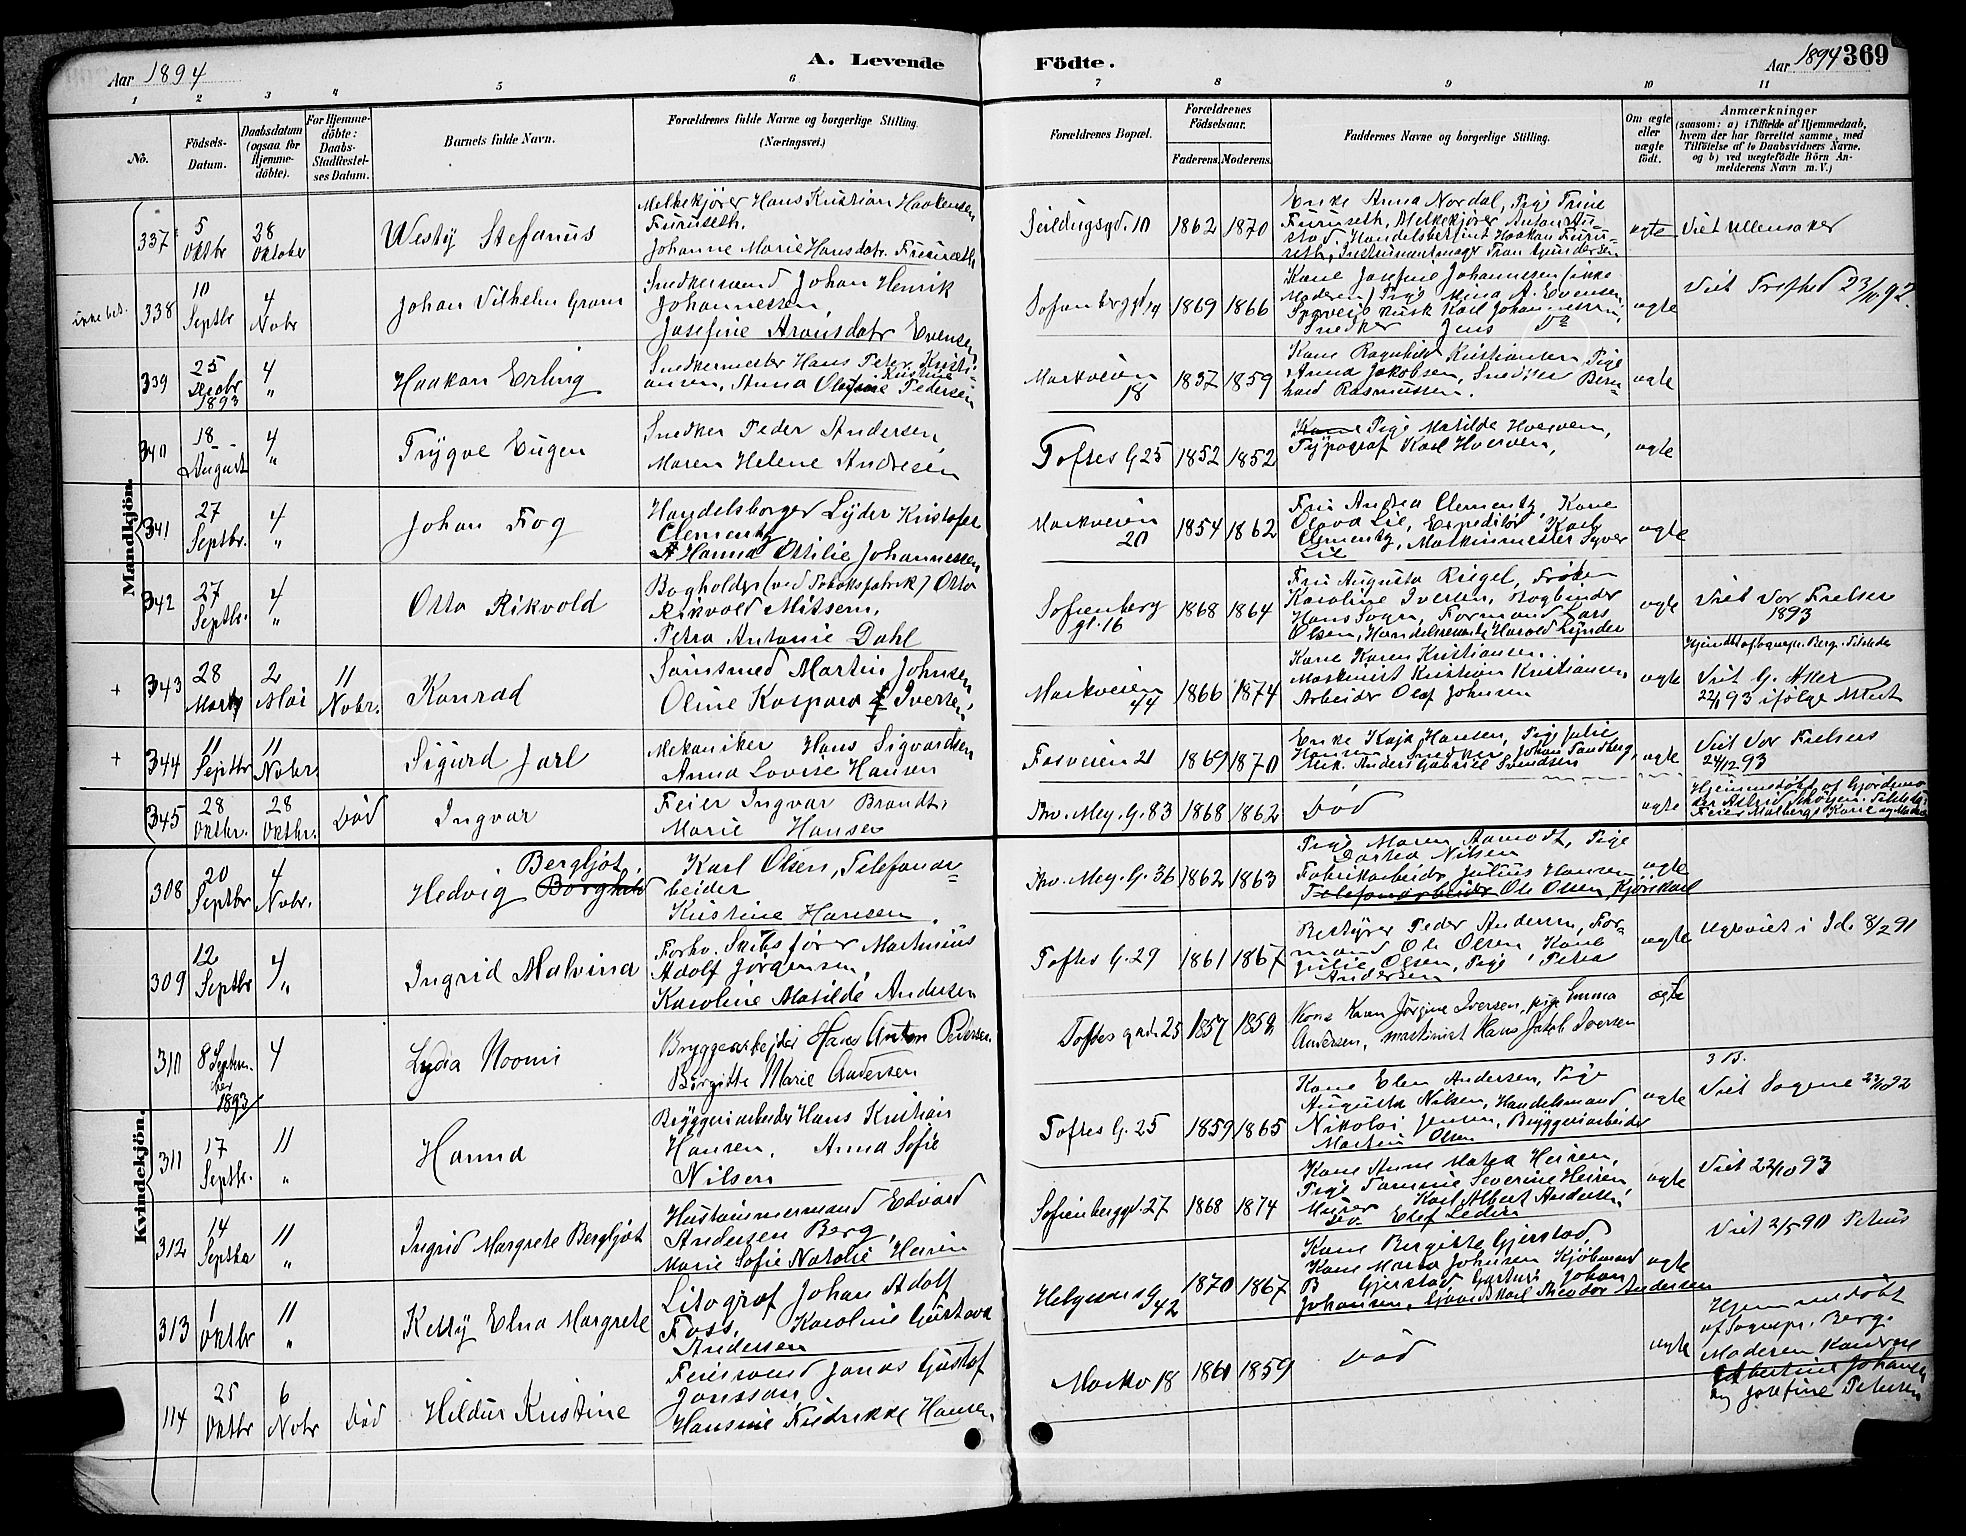 Aar 1894
A. Levende
Födte.
Aar 1894 369
1 2 3 4 5 6 7 8 9 10 11
No.
Födsels-
Datum.
Daabsdatum
(ogsaa for
Hjemme-
döbte).
For Hjemme-
döbte:
Daabs-
Stadfæstel-
ses Datum.
Barnets fulde Navn.
Forældrenes fulde Navne og borgerlige Stilling.
(Næringsvei.)
Forældrenes Bopæl.
Forældrenes
Födselsaar.
Faderens. Moderens.
Faddernes Navne og borgerlige Stilling.
Om ægte
eller
uægte
födt.
Anmærkninger
(saasom: a) i Tilfælde af Hjemmedaab,
hvem der har forrettet samme, med
Tilföielse af to Daabsvidners Navne.
og b) ved uægtefödte Börn An-
melderens Navn m. V.)
Mandkjön.
337
5
Oktbr
28
Oktober
Westy Stefanus
Melkekjører Hans Kristian Haakensen
Furuseth.
Johanne Marie Hansdatr. Furuseth
1862 1870
Enke Anna Nordal, Pige Trine
Furuseth, Melkekjører Anton
Handelsbetjent Haakon Furu-
seth, Instrumentmager Gundersen
ægte
Viet Ullensaker
ikke bet.
338
10
Septbr
4
Nobr
Johan Vilhelm Gram
Snedkersvend Johan Henrik
Johannessen
Josefine Aronsdatr Evensen
Sofienberggd 14
1869 1866
Kone Josefine Johannessen (ikke
Moderen) Pige Mina A. Evensen,
Sporveis kusk Karl Johannessen,
Snedker Jens Do
ægte
Viet Trefhed 23/10 92.
339
25
Decbr
1893
4
"
Haakon Erling
Snedkermester Hans Peter Kristi-
ansen, Anna Olefine Kristine Pedersen
Markveien
18
1857 1859
Kone Ragnhild Kristiansen Pige
Anna Jakobsen, Snedker Bern-
hard Rasmussen.
ægte
340
18
August
4
"
Trygve Eugen
Snedker Peder Andersen,
Maren Helene Andresen
Toftes G. 25
1852 1852
Kone Pige Matilde Hoerven,
Typograf Karl Hoerven,
ægte
341
27
Septbr.
4
"
Johan Fog
Handelsborger Lyder Kristofer
Clementz
Hanna Ottilie Johannessen
Markveien
20
1854 1862
Fru Andrea Clementz, Kone
Olava Lie, Expeditør Karl
Clementz, Maskinmester Syver
Lie
ægte
342
27
Septbr.
4
"
Otto Rikvold
Bogholder (ved Tobaksfabrik) Otto
Rikvold Nilsen,
Petra Antonie Dahl
Sofienberg
gt. 16
1868 1864
Fru Augusta Riegel, Frøken
Karoline Iversen, Bogbinder
Hans Sogn, Formand Lars
Olsen, Handelsreisende Harald Lynder
ægte
Viet Vor Frelser
1893
+
343
28
Marts
2
Mai
11
Nobr.
Konrad
Somsmed Martin Johnsen
Oline Kaspara Iversen
Markveien
44
1866 1874
Kone Karen Kristiansen.
Maskinist Kristian Kristiansen,
Arbeider Olaf Johnsen
ægte
Hjemdøbt af Sognepr. Berg. Tilstede
Viet G. Aker
22/1 93 ifølge Attest
+
344
11
Septbr
11
Nobr.
Sigurd Jarl
Mekaniker Hans Sigvardsen
Anna Lovise Hansen
Fosveien 21
1869 1870
Enke Kaja Hansen, Pige Julie
Hansen Snedker Johan Sandberg,
Mek. Anders Gabriel Svendsen
ægte
Viet Vor Frelsers
24/12 93
345
28
Oktbr.
28
Oktbr.
Død
Ingvar
Feier Ingvar Brandt,
Marie Hansen
Thv. Mey. G. 83
1868 1862
Død
ægte
Hjemmedøbt af Gjordemo-
der Astrid Skøyen. Tilstede:
Feier Malbergs Kone og Moderen
Kvindekjön.
308
20
Septbr
4
Nobr.
Hedvig Borghild Bergljot.
Karl Olsen, Telefonar-
beider
Kristine Hansen.
Thv. Mey. G. 36
1862 1863
Pige Maren Aamodt, Pige
Dorthea Nilsen
Fabrikarbeider Julius Hansen
Telefonarbeider Ole Olsen Kjørekarl
ægte
309
12
Septbr
4
"
Ingrid Malvina
Forhv. Skibsfører Martinius
Adolf Jørgensen,
Karoline Matilde Andersen
Toftes G. 29
1861 1867
Bestyrer Peder Andersen, For-
mand Ole Olsen Kone
Julie Olsen, Pige Petra
Andersen
ægte
Ugeviet i Id. 8/2 91
310
8 Septem-
ber
1893
4
Lydia Noomi
Bryggearbejder Hans Anton Petersen
Birgitte Marie Andersen
Toftes gade 25
1857 1859
Kone Karen Jørgine Iversen, pige Emma
Andersen, maskinist Hans Jakob Iversen
ægte
311
17
Septbr.
11
"
Hanna
Bryggeriarbeider Hans Kristian
Hansen, Anna Sofie
Nilsen
Toftes G. 25
1859 1865
Kone Elen Andersen, Pige
Augusta Nilsen, Handelsmand
Nikolai Jensen, Bryggeriarbeider
Martin Olsen
ægte
3 B.
Viet Sagene 23/10 92
312
14
Septbr
11
"
Ingrid Margrete Bergljot
Hustømmermand Edvard
Andersen Berg,
Marie Sofie Natalie Heiren
Sofienberggd. 27
1868 1874
Kone Anne Matea Heiren,
Pige Tomine Severine Heiren
Murer Karl Albert Andersen,
Do. Elef Leder
ægte
Viet 22/10 93
313
1
Oktbr
11
"
Ketty Elna Margrete
Litograf Johan Adolf
Foss, Karoline Gustava
Andersen
Helgesens G
42
1870 1867
Kone Bergitte Gjerstad,
Kone Marta Johnsen Kjøbmand
B Gjerstad Gartner Johan
Johansen, Gaardskarl Theodor Andersen
ægte
Viet 2/5 90 Petrus
114
25
Oktbr
6
Nobr
Død
Hildur Kristine
Feiersvend Jonas Gustaf
Jonsson,
Hansine Fredrikke Hansen,
Markv 18
1860 1859
Død
ægte
Hjemmedøbt
af Sognepr. Berg.
Moderen
Albertine Johansen
og Josefine Petersen